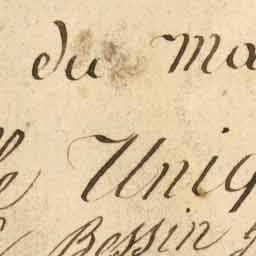 du ma
le Uniq
Bessin